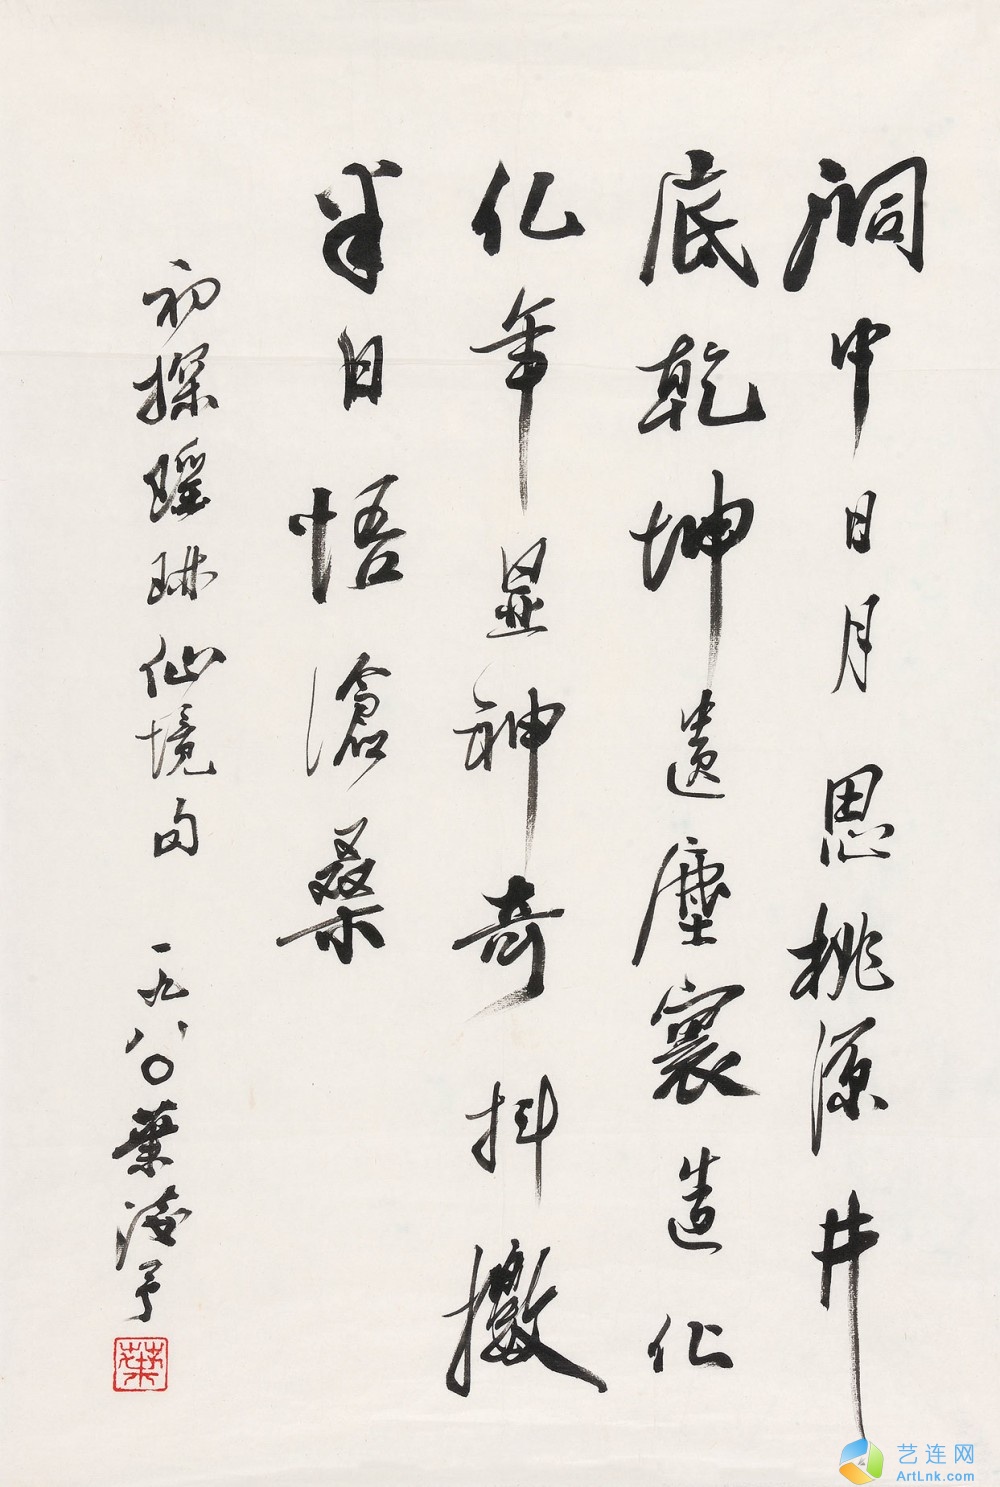 洞中日月思桃源井
底乾坤遗塵寰造化
亿年显神奇抖擞
半日悟滄桑
初探瑶琳仙境句 一九八〇 葉浅予
葉
艺连网
ArtLnk.com